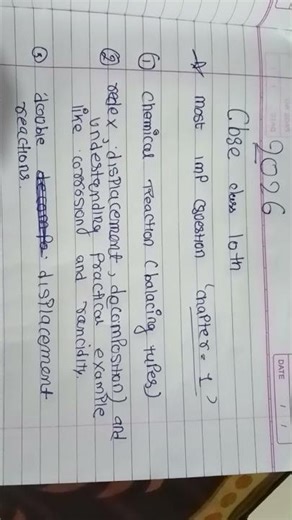 2026
Cbse class 10th
☆ most imp question 'chapter = 1'
① Chemical reaction (balacing types)
② redex, displacement, decomposition) and
understanding practical example
like corrosiong and rancidity.
③ double displacement
reactions.
DATE